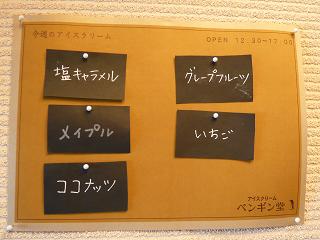 今週のアイスクリーム
OPEN 12:30~17:00
塩キャラメル
グレープフルーツ
メイプル
いちご
ココナッツ
アイスクリーム
ペンギン堂